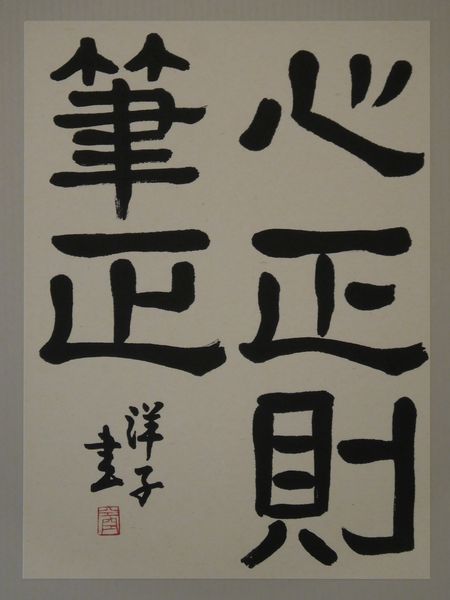 心正則
筆正
洋子書